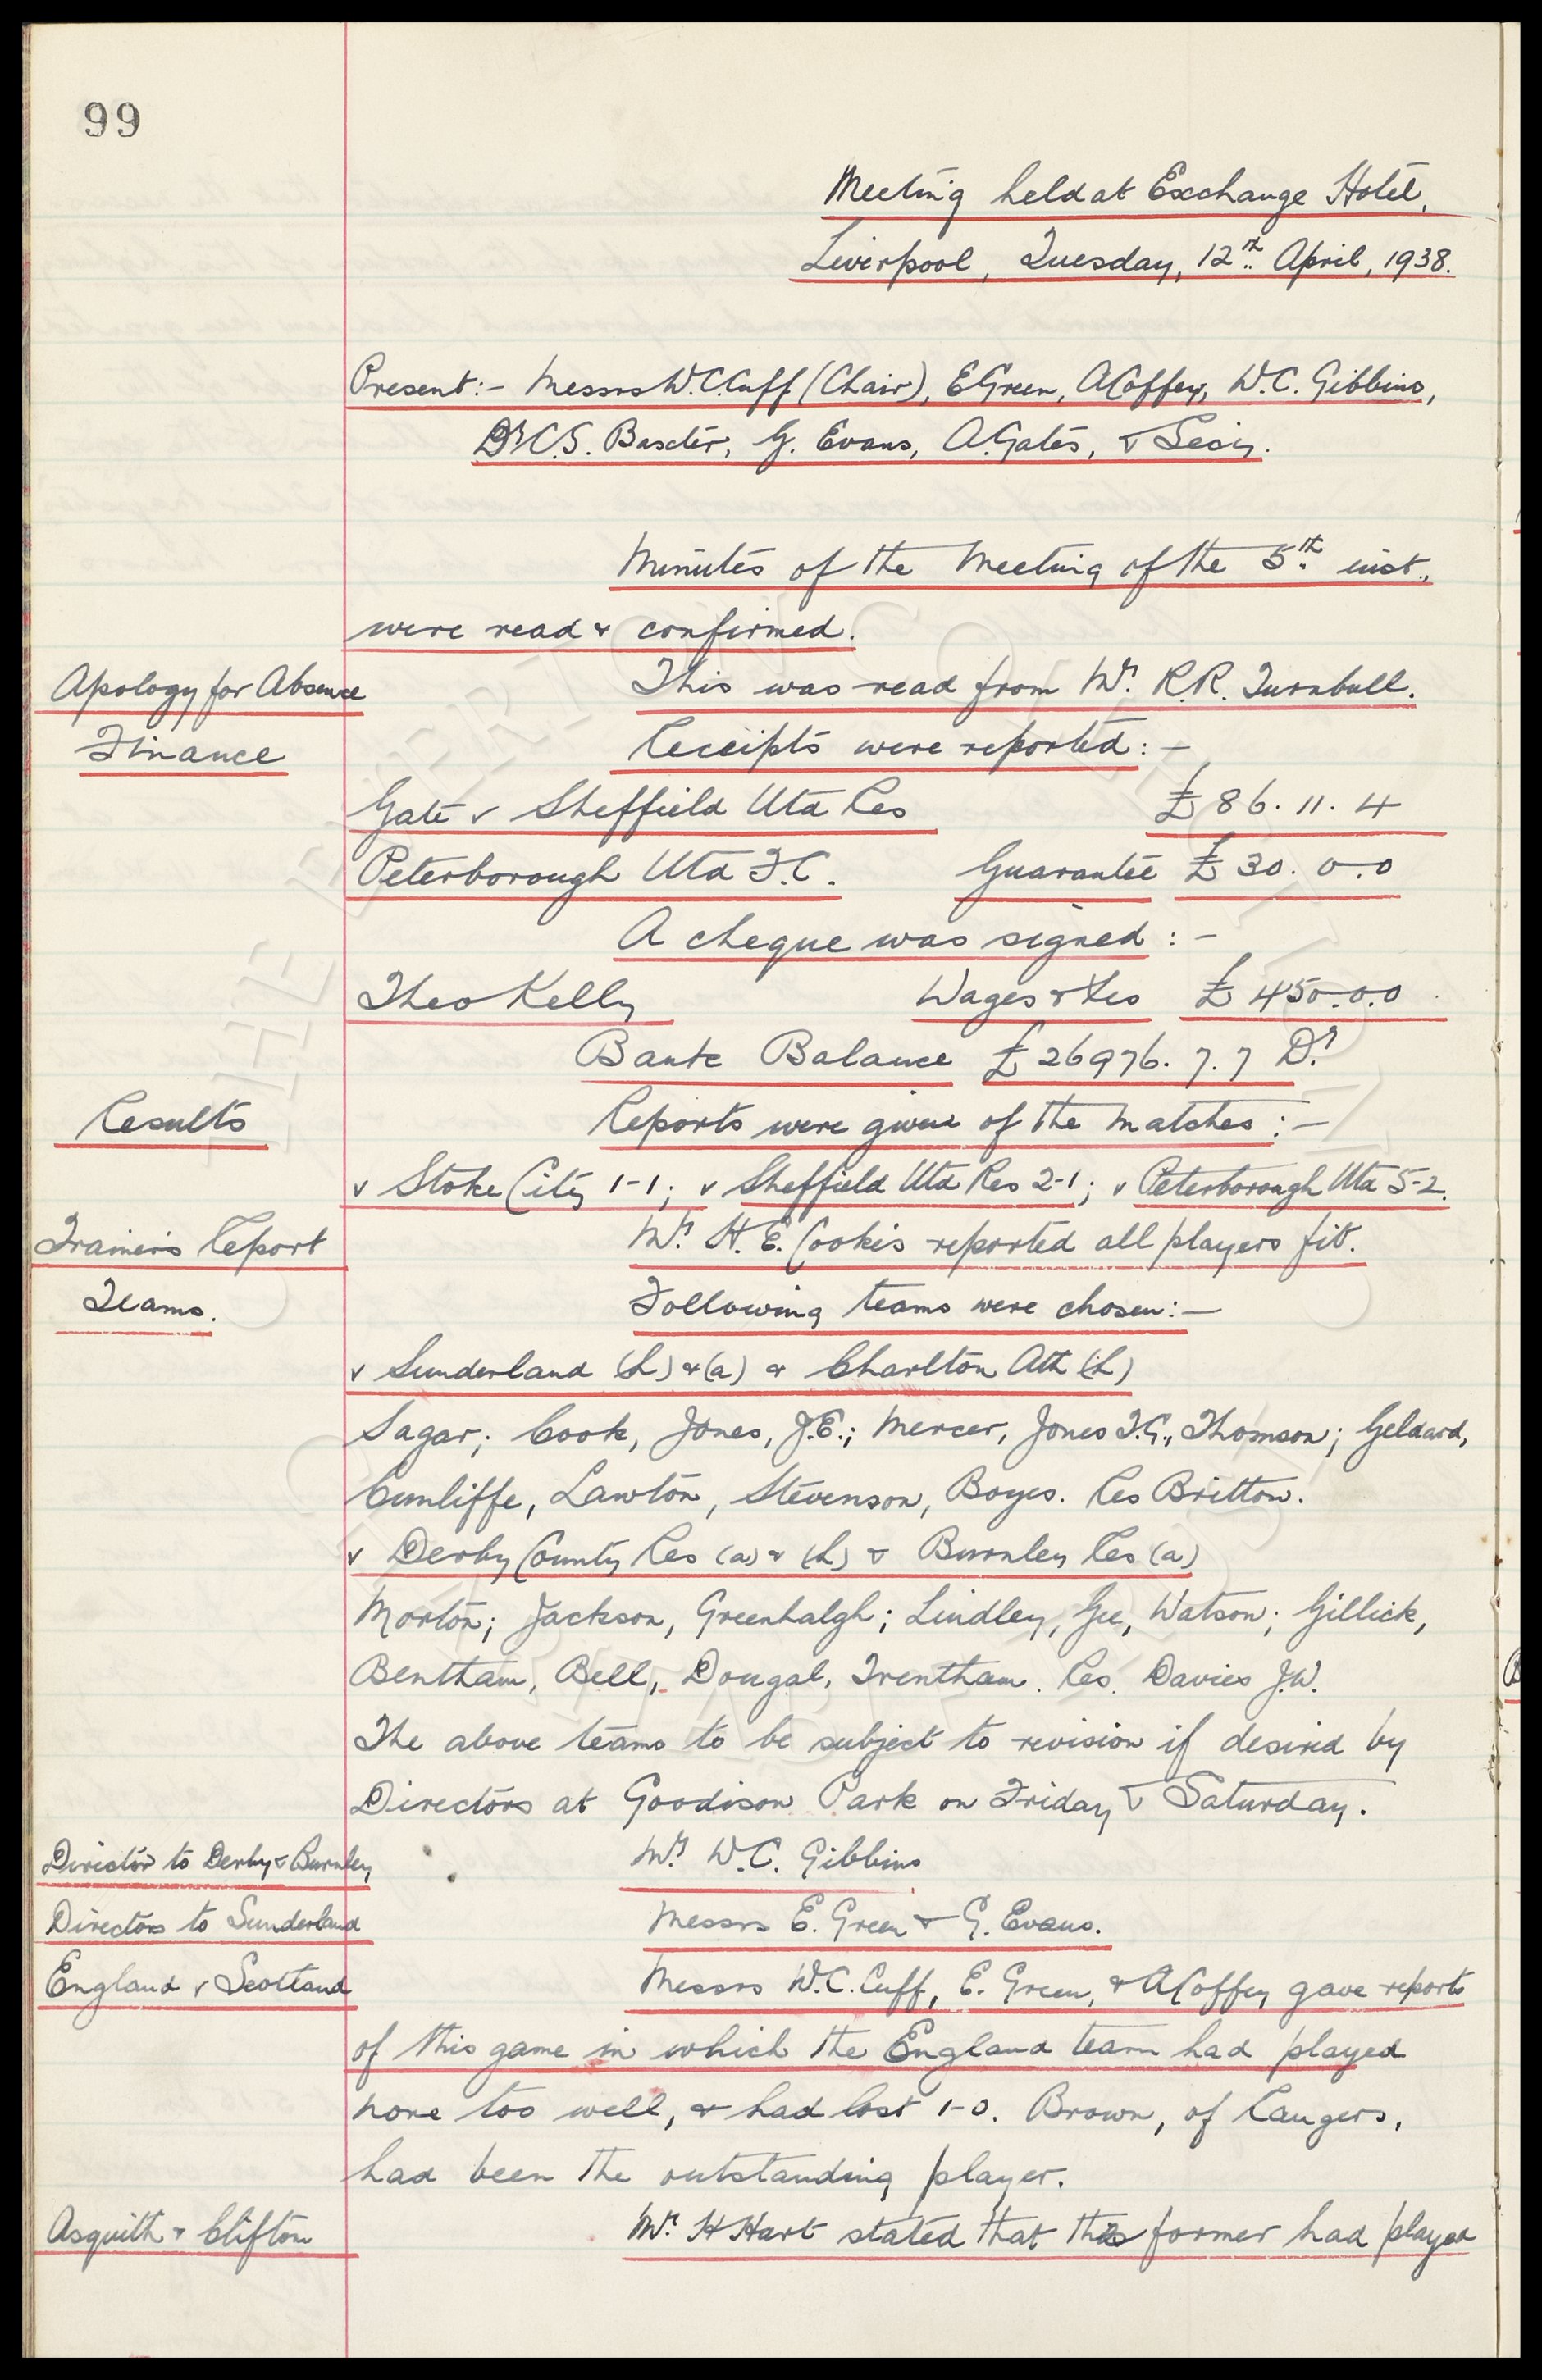 99
Meeting held at Exchange Hotel,
Liverpool, Tuesday, 12th April, 1938.
Present:- Messrs W.C. Cuff (Chair), E Green, A Coffey, W.C. Gibbins,
Dr C.S. Baxter, G. Evans, A. Gates, & Secy.
Minutes of the Meeting of the 5th inst.,
were read & confirmed.
Apology for Absence This was read from Mr. R.R. Turnbull.
Finance Receipts were reported:-
Gate v Sheffield Utd Res £86. 11. 4
Peterborough Utd F.C. Guarantee £30. 0.0
A cheque was signed:-
Theo Kelly Wages &c £450.0.0
Bank Balance £26976. 7. 7 Dr
Results Reports were given of the matches:-
v Stoke City 1-1; v Sheffield Utd Res 2-1; v Peterborough Utd 5-2.
Trainer's Report Mr. H.E. Cooke's reported all players fit.
Teams. Following teams were chosen:-
v Sunderland (h) & (a) & Charlton Ath (h)
Sagar; Cook, Jones, J.E.; Mercer, Jones T.G., Thomson; Geldard,
Cunliffe, Lawton, Stevenson, Boyes. Res Britton.
v Derby County Res (a) & (h) & Burnley Res (a)
Morton; Jackson, Greenhalgh; Lindley, Gee, Watson; Gillick,
Bentham, Bell, Dougal, Trentham. Res. Davies J.W.
The above teams to be subject to revision if desired by
Directors at Goodison Park on Friday & Saturday.
Director to Derby & Burnley Mr. W.C. Gibbins
Directors to Sunderland Messrs E. Green & G. Evans.
England v Scotland Messrs W.C. Cuff, E. Green, & A Coffey gave reports
of this game in which the England team had played
none too well, & had lost 1-0. Brown, of Rangers,
had been the outstanding player.
Asquith & Clifton Mr. H Hart stated that the former had played